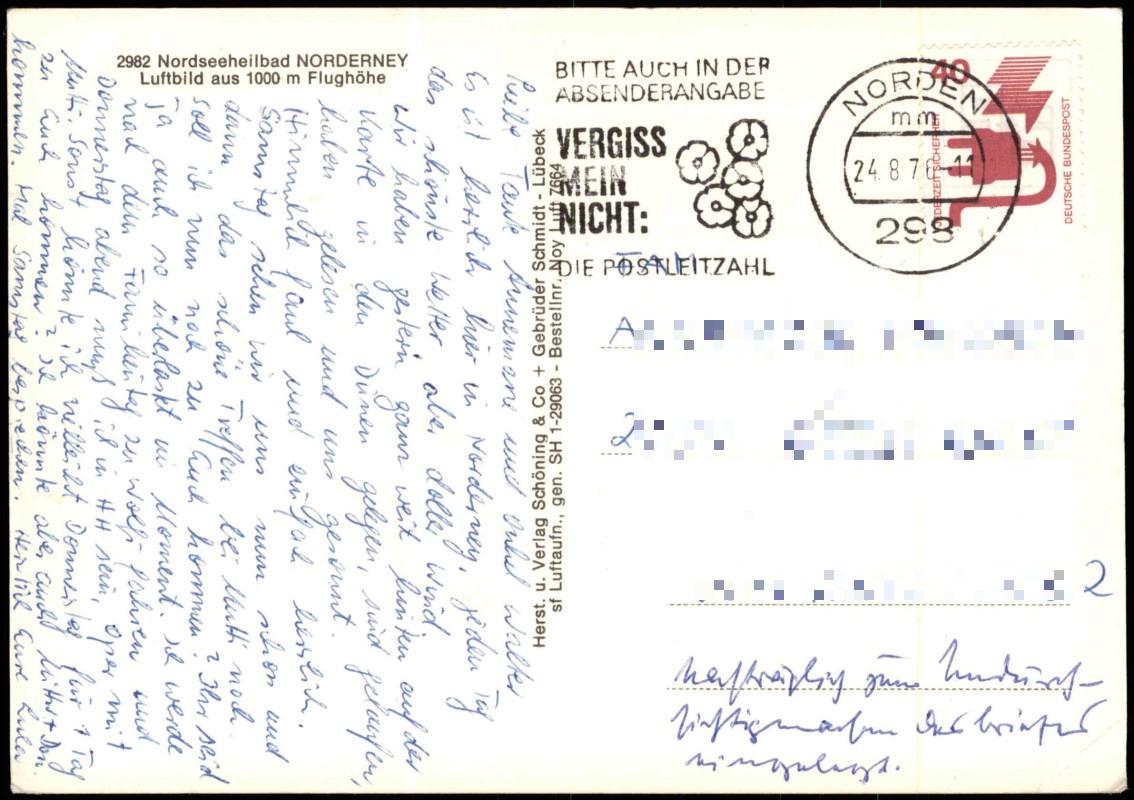 2982 Nordseeheilbad NORDERNEY
Luftbild aus 1000 m Flughöhe
BITTE AUCH IN DER
ABSENDERANGABE
VERGISS
MEIN
NICHT:
DIE POSTLEITZAHL
NORDEN
mm
24.8.7 -11
298
40
JEDERZEIT SICHERHEIT
DEUTSCHE BUNDESPOST
Liebe Tante Annemarie und Onkel Walter
Es ist herrlich hier in Norderney, jeden Tag
das schönste Wetter aber doller Wind.
Wir haben gestern ganz weit hinten auf der
Karte in den Dünen gelegen, sind gelaufen,
haben gelesen und uns gesonnt.
Himmlich faul und einfach herrlich.
Samstag sehen wir uns nun schon und
dann das schöne Treffen bei Mutti noch.
Soll ich nun noch zu Euch kommen? Ihr seid
ja auch so überlastet im Moment. Ich werde
nach dem Familientag zu Wolf fahren und
Donnerstag abend muß ich in HH sein, Oper mit
Mutti. Sonst könnte ich vielleicht Donnerstag für 1 Tag
zu Euch kommen? Ich könnte aber auch Mittw + Don.
kommen. Mal Samstag besprechen. Herzlich Eure
Herst. u. Verlag Schöning & Co + Gebrüder Schmidt - Lübeck
sf Luftaufn., gen. SH 1-29063 - Bestellnr. Noy Luft 7664
A
2
2
nachträglich zum Undurch-
sichtigmachen des Briefes
eingelegt.